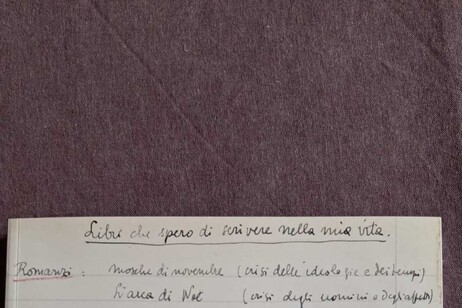 Libri che spero di scrivere nella mia vita.
Romanzi: mosche di novembre (crisi delle ideologie e dei tempi)
L'arca di Noè (crisi degli uomini e degli aspetti)